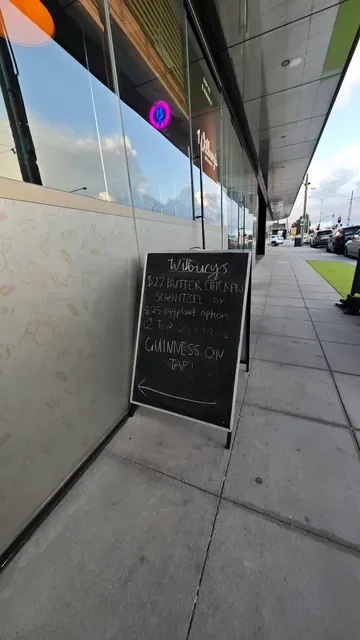 Wilburys
$27 BUTTER CHICKEN
SCHNITZEL or
$25 eggplant option
2 Top
GUINNESS ON
TAP!